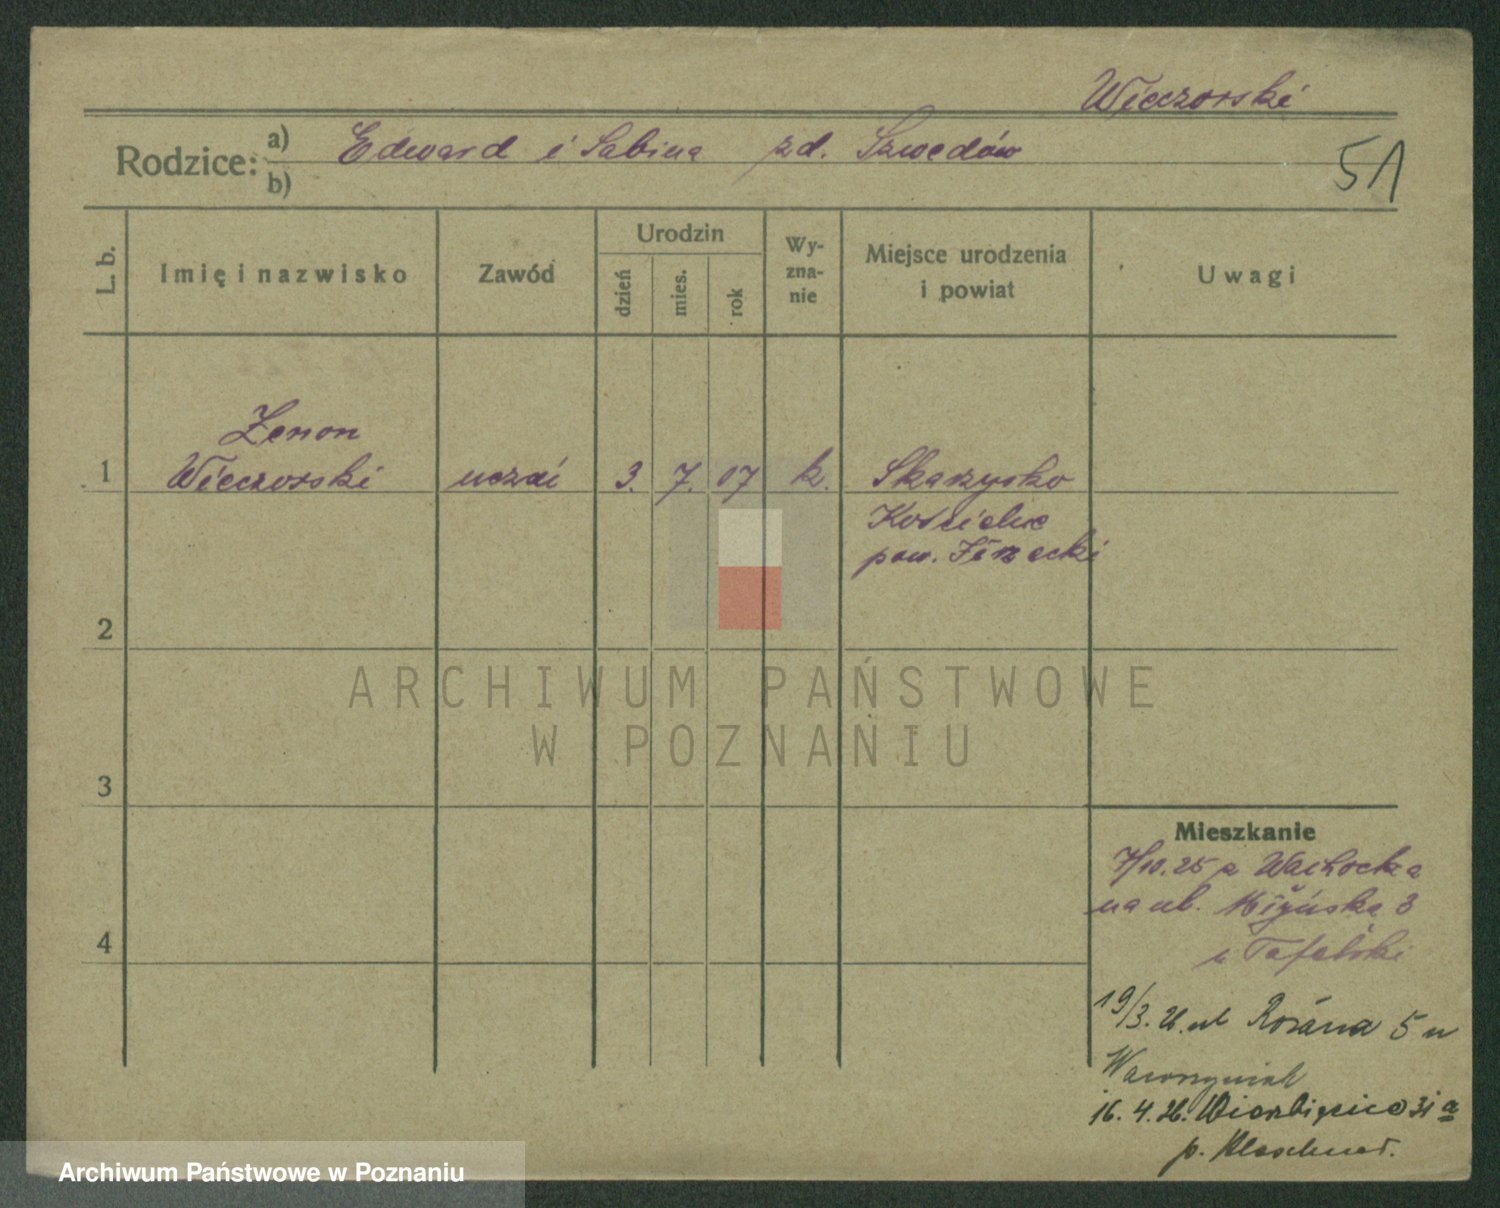 Wieczorski
Rodzice: a) Edward i Sabina zd. Szwedów
b)
51
L. b.
Imię i nazwisko
Zawód
Urodzin
dzień
mies.
rok
Wy-
zna-
nie
Miejsce urodzenia
i powiat
Uwagi
Zenon
1 Wieczorski uczń 3. 7. 07 k. Skarzysko
Kościelne
pow. Iłżecki
2
ARCHIWUM PAŃSTWOWE
W POZNANIU
3
Mieszkanie
7/10.25 z Wachocka
na ul. 3
4
19/3. 26. ul Różana 5 u
Wawrzyniak
16. 4. 26. Wierzbięcice 31 a
p.
Archiwum Państwowe w Poznaniu